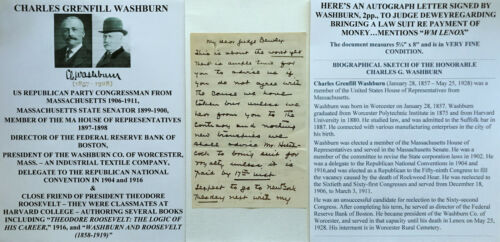 CHARLES GRENFILL WASHBURN
CWashburn
(1857-1928)
US REPUBLICAN PARTY CONGRESSMAN FROM
MASSACHUSETTS 1906-1911,
MASSACHUSETTS STATE SENATOR 1899-1900,
MEMBER OF THE MA HOUSE OF REPRESENTATIVES
1897-1898
DIRECTOR OF THE FEDERAL RESERVE BANK OF
BOSTON,
PRESIDENT OF THE WASHBURN CO. OF WORCESTER,
MASS. – AN INDUSTRIAL TEXTILE COMPANY,
DELEGATE TO THE REPUBLICAN NATIONAL
CONVENTION IN 1904 and 1916
&
CLOSE FRIEND OF PRESIDENT THEODORE
ROOSEVELT – THEY WERE CLASSMATES AT
HARVARD COLLEGE – AUTHORING SEVERAL BOOKS
INCLUDING "THEODORE ROOSEVELT: THE LOGIC OF
HIS CAREER," 1916, and "WASHBURN AND ROOSEVELT
(1858-1919)"
My dear Judge Dewey
This is about the
There is ample time for
you to advise us if
you do not agree with
the course we have
taken but unless we
hear from you to the
contrary and nothing
new transpires we
shall advise Mr.
to bring suit for
unless it is
paid by 17th inst
expect to go to New York
Tuesday next with my
HERE'S AN AUTOGRAPH LETTER SIGNED BY
WASHBURN, 2pp., TO JUDGE DEWEYREGARDING
BRINGING A LAW SUIT RE PAYMENT OF
MONEY…MENTIONS "WM LENOX"
The document measures 5¼" x 8" and is in VERY FINE
CONDITION.
BIOGRAPHICAL SKETCH OF THE HONORABLE
CHARLES G. WASHBURN
Charles Grenfill Washburn (January 28, 1857 – May 25, 1928) was a
member of the United States House of Representatives from
Massachusetts.
Washburn was born in Worcester on January 28, 1857. Washburn
graduated from Worcester Polytechnic Institute in 1875 and from Harvard
University in 1880. He studied law, and was admitted to the Suffolk bar in
1887. He connected with various manufacturing enterprises in the city of
his birth.
Washburn was elected a member of the Massachusetts House of
Representatives and served in the Massachusetts Senate. He was a
member of the committee to revise the State corporation laws in 1902. He
was a delegate to the Republican National Conventions in 1904 and
1916,and was elected as a Republican to the Fifty-ninth Congress to fill
the vacancy caused by the death of Rockwood Hoar. He was reelected to
the Sixtieth and Sixty-first Congresses and served from December 18,
1906, to March 3, 1911.
He was an unsuccessful candidate for reelection to the Sixty-second
Congress. After completing his term, he served as director of the Federal
Reserve Bank of Boston. He became president of the Washburn Co. of
Worcester, and served in that capacity until his death in Lenox on May 25,
1928. His interment is in Worcester Rural Cemetery.